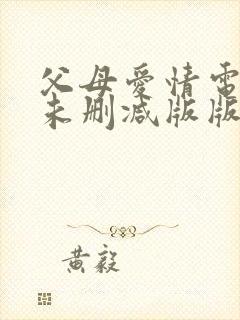 父母爱情電
未删减版版
黄毅